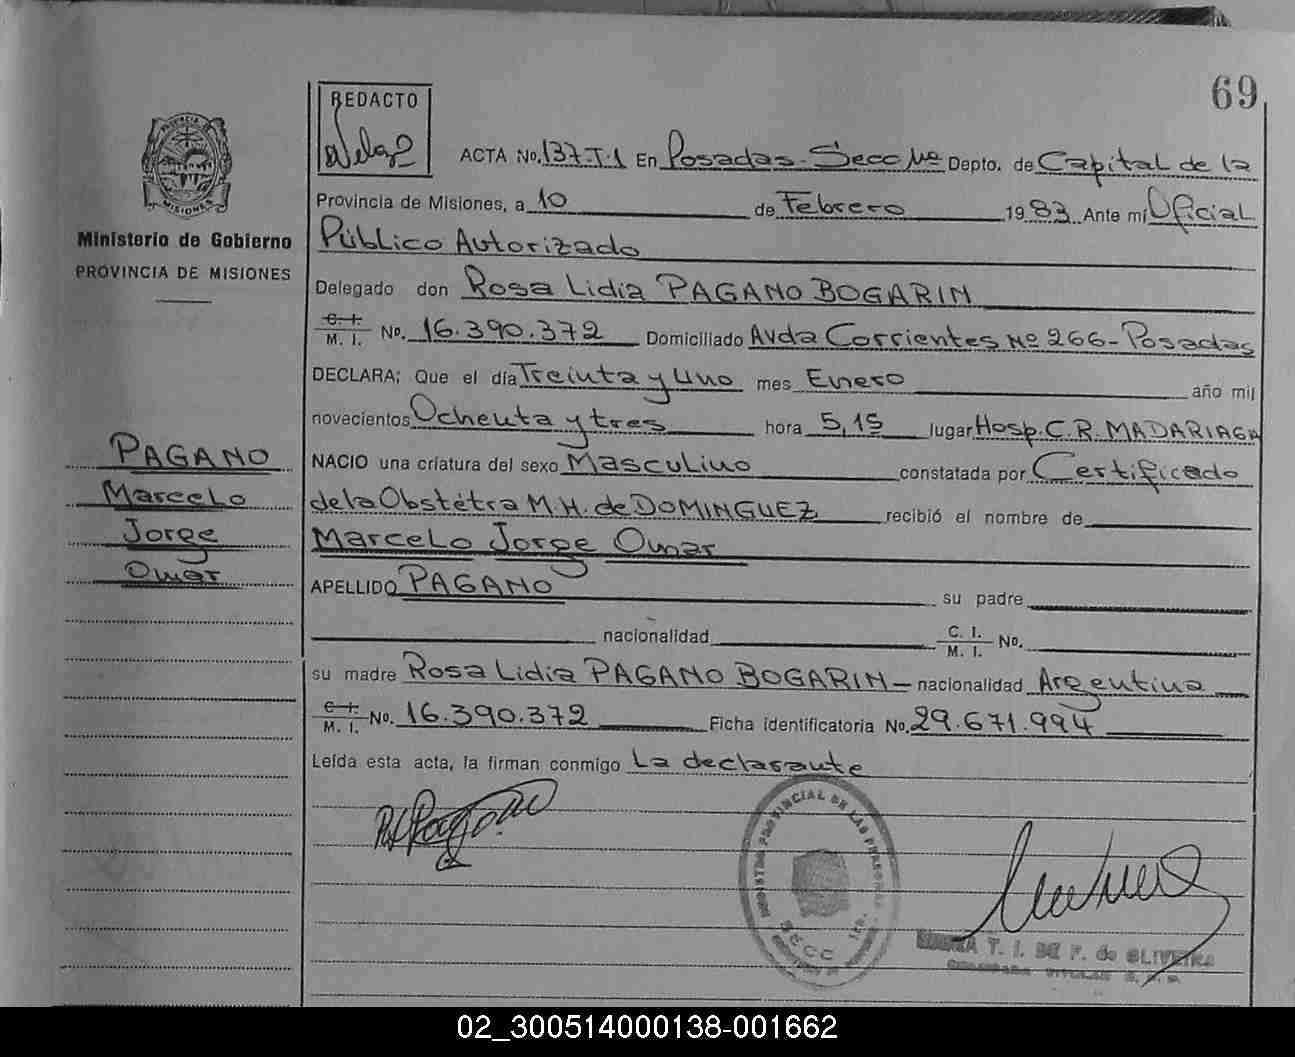 69
REDACTO
ACTA No. 137-T-1 En Posadas-Secc 1ra Depto. de Capital de la
Provincia de Misiones, a 10 de Febrero 1983 Ante mí Oficial
Público Autorizado
PROVINCIA DE
MISIONES
Ministerio de Gobierno
PROVINCIA DE MISIONES
Delegado don Rosa Lidia PAGANO BOGARIN
C. I.
M. I. No. 16.390.372 Domiciliado Avda Corrientes Nº 266-Posadas
DECLARA; Que el día Treinta y Uno mes Enero año mil
novecientos Ochenta y tres hora 5,15 lugar Hosp. C.R. MADARIAGA
NACIO una criatura del sexo Masculino constatada por Certificado
de la Obstétra M.H. de DOMINGUEZ recibió el nombre de
Marcelo Jorge Omar
APELLIDO PAGANO su padre
nacionalidad C. I.
M. I. No.
su madre Rosa Lidia PAGANO BOGARIN- nacionalidad Argentina
C. I.
M. I. No. 16.390.372 Ficha identificatoria No. 29.671.994
Leída esta acta, la firman conmigo La declarante
PAGANO
Marcelo
Jorge
Omar
REGISTRO PROVINCIAL DE LAS PERSONAS
SECC 1ra.
T. I. DE F. de OLIVEIRA
02_300514000138-001662